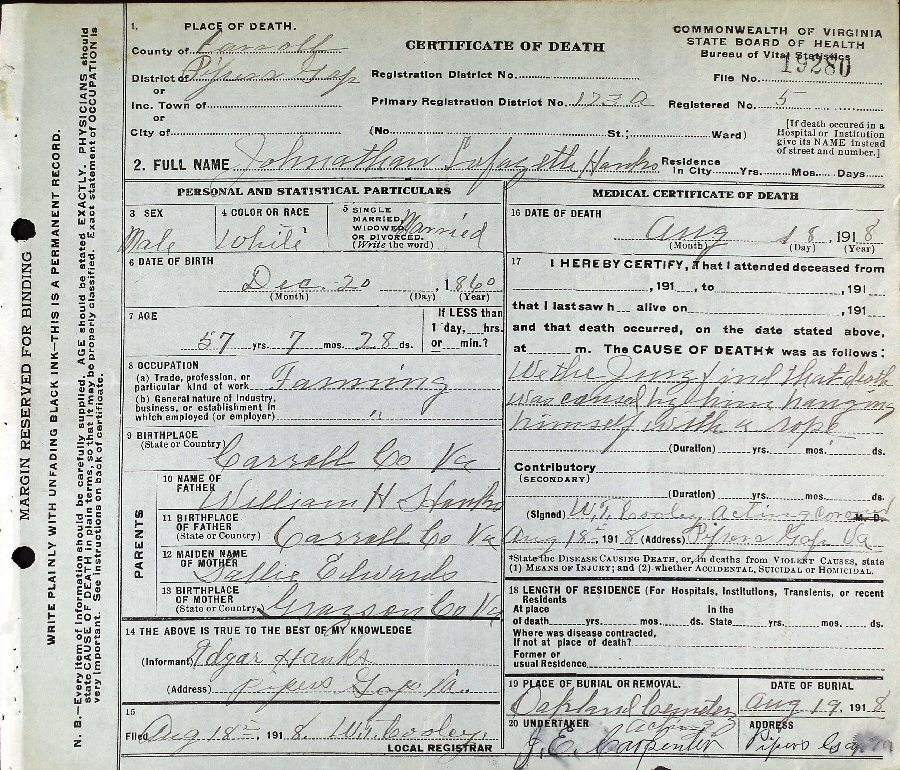 MARGIN RESERVED FOR BINDING
WRITE PLAINLY WITH UNFADING BLACK INK—THIS IS A PERMANENT RECORD.
N. B.—Every item of information should be carefully supplied. AGE should be stated EXACTLY. PHYSICIANS should
state CAUSE OF DEATH in plain terms, so that it may be properly classified. Exact statement of OCCUPATION is
very important. See instructions on back of certificate.
1. PLACE OF DEATH.
County of Carroll
District of Pipers Gap
or
Inc. Town of
or
City of
CERTIFICATE OF DEATH
Registration District No.
Primary Registration District No. 173a
(No. St.; Ward)
COMMONWEALTH OF VIRGINIA
STATE BOARD OF HEALTH
Bureau of Vital Statistics
File No. 19280
Registered No. 5
[If death occured in a
Hospital or Institution
give its NAME instead
of street and number.]
2. FULL NAME Johnathan Lafayette Hanks Residence
In City Yrs. Mos. Days
PERSONAL AND STATISTICAL PARTICULARS
3 SEX
Male
4 COLOR OR RACE
White
5 SINGLE
MARRIED,
WIDOWED
OR DIVORCED.
(Write the word)
Married
6 DATE OF BIRTH
Dec. 20, 1860
(Month) (Day) (Year)
7 AGE
57 yrs. 7 mos. 28 ds.
If LESS than
1 day, hrs.
or min.?
8 OCCUPATION
(a) Trade, profession, or
particular kind of work Faming
(b) General nature of industry,
business, or establishment in
which employed (or employer) "
9 BIRTHPLACE
(State or Country)
Carroll Co Va
PARENTS
10 NAME OF
FATHER
William H Hanks
11 BIRTHPLACE
OF FATHER
(State or Country)
Carroll Co Va
12 MAIDEN NAME
OF MOTHER
Sallie Edwards
13 BIRTHPLACE
OF MOTHER
(State or Country)
Grayson Co Va
14 THE ABOVE IS TRUE TO THE BEST OF MY KNOWLEDGE
(Informant) Edgar Hanks
(Address) Pipers Gap Va.
15
Filed Aug 18th, 1918 W.T. Cooley.
LOCAL REGISTRAR
MEDICAL CERTIFICATE OF DEATH
16 DATE OF DEATH
Aug 18, 1918
(Month) (Day) (Year)
17 I HEREBY CERTIFY, That I attended deceased from
, 191 , to , 191
that I last saw h alive on , 191
and that death occurred, on the date stated above,
at m. The CAUSE OF DEATH★ was as follows:
We the Jury find that death
was caused by hanging
himself with a rope
(Duration) yrs. mos. ds.
Contributory
(SECONDARY)
(Duration) yrs. mos. ds.
(Signed) W.T. Cooley Acting Coroner M. D.
Aug 18th 1918 (Address) Pipers Gap Va
*State the DISEASE CAUSING DEATH, or, in deaths from VIOLENT CAUSES, state
(1) MEANS OF INJURY; and (2) whether ACCIDENTAL, SUICIDAL or HOMICIDAL.
18 LENGTH OF RESIDENCE (For Hospitals, Institutions, Transients, or recent
Residents
At place In the
of death yrs. mos. ds. State yrs. mos. ds.
Where was disease contracted,
If not at place of death?
Former or
usual Residence
19 PLACE OF BURIAL OR REMOVAL.
Oakland Cemetery
DATE OF BURIAL
Aug 19, 1918
20 UNDERTAKER acting
J. E. Carpenter
ADDRESS
Pipers Gap Va